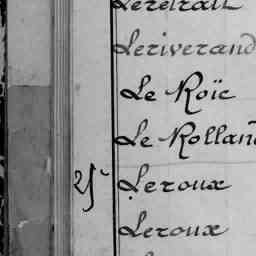 Leretrait
Leriverand
Le Roïc
Le Rolland
Leroux
Leroux